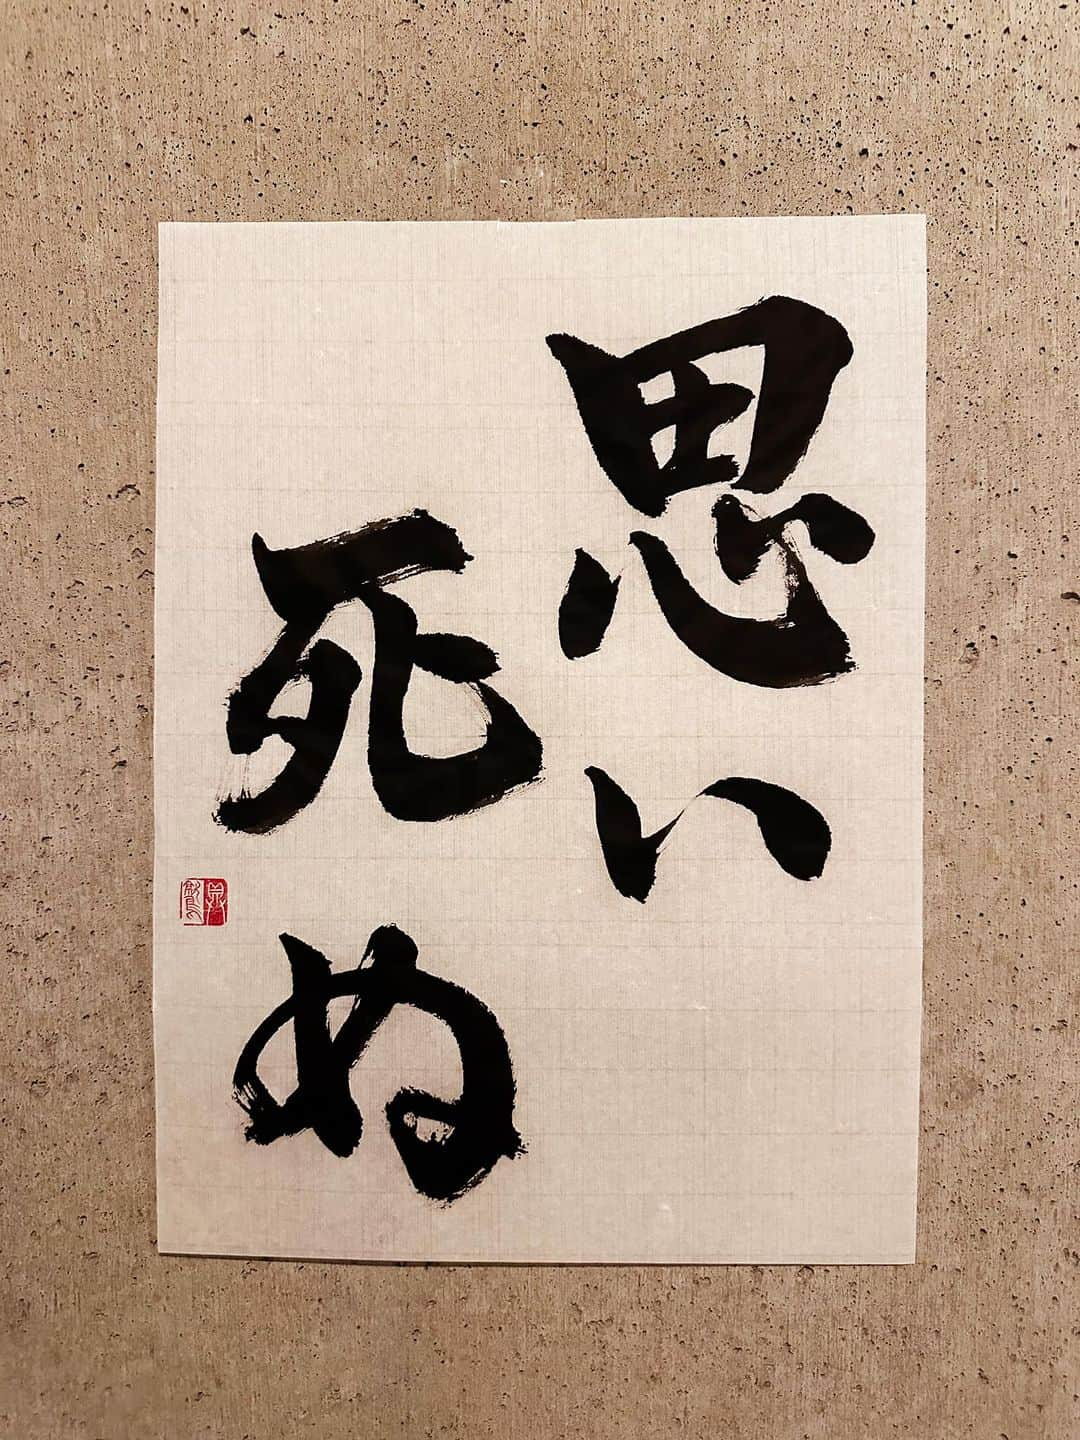 思い
死ぬ